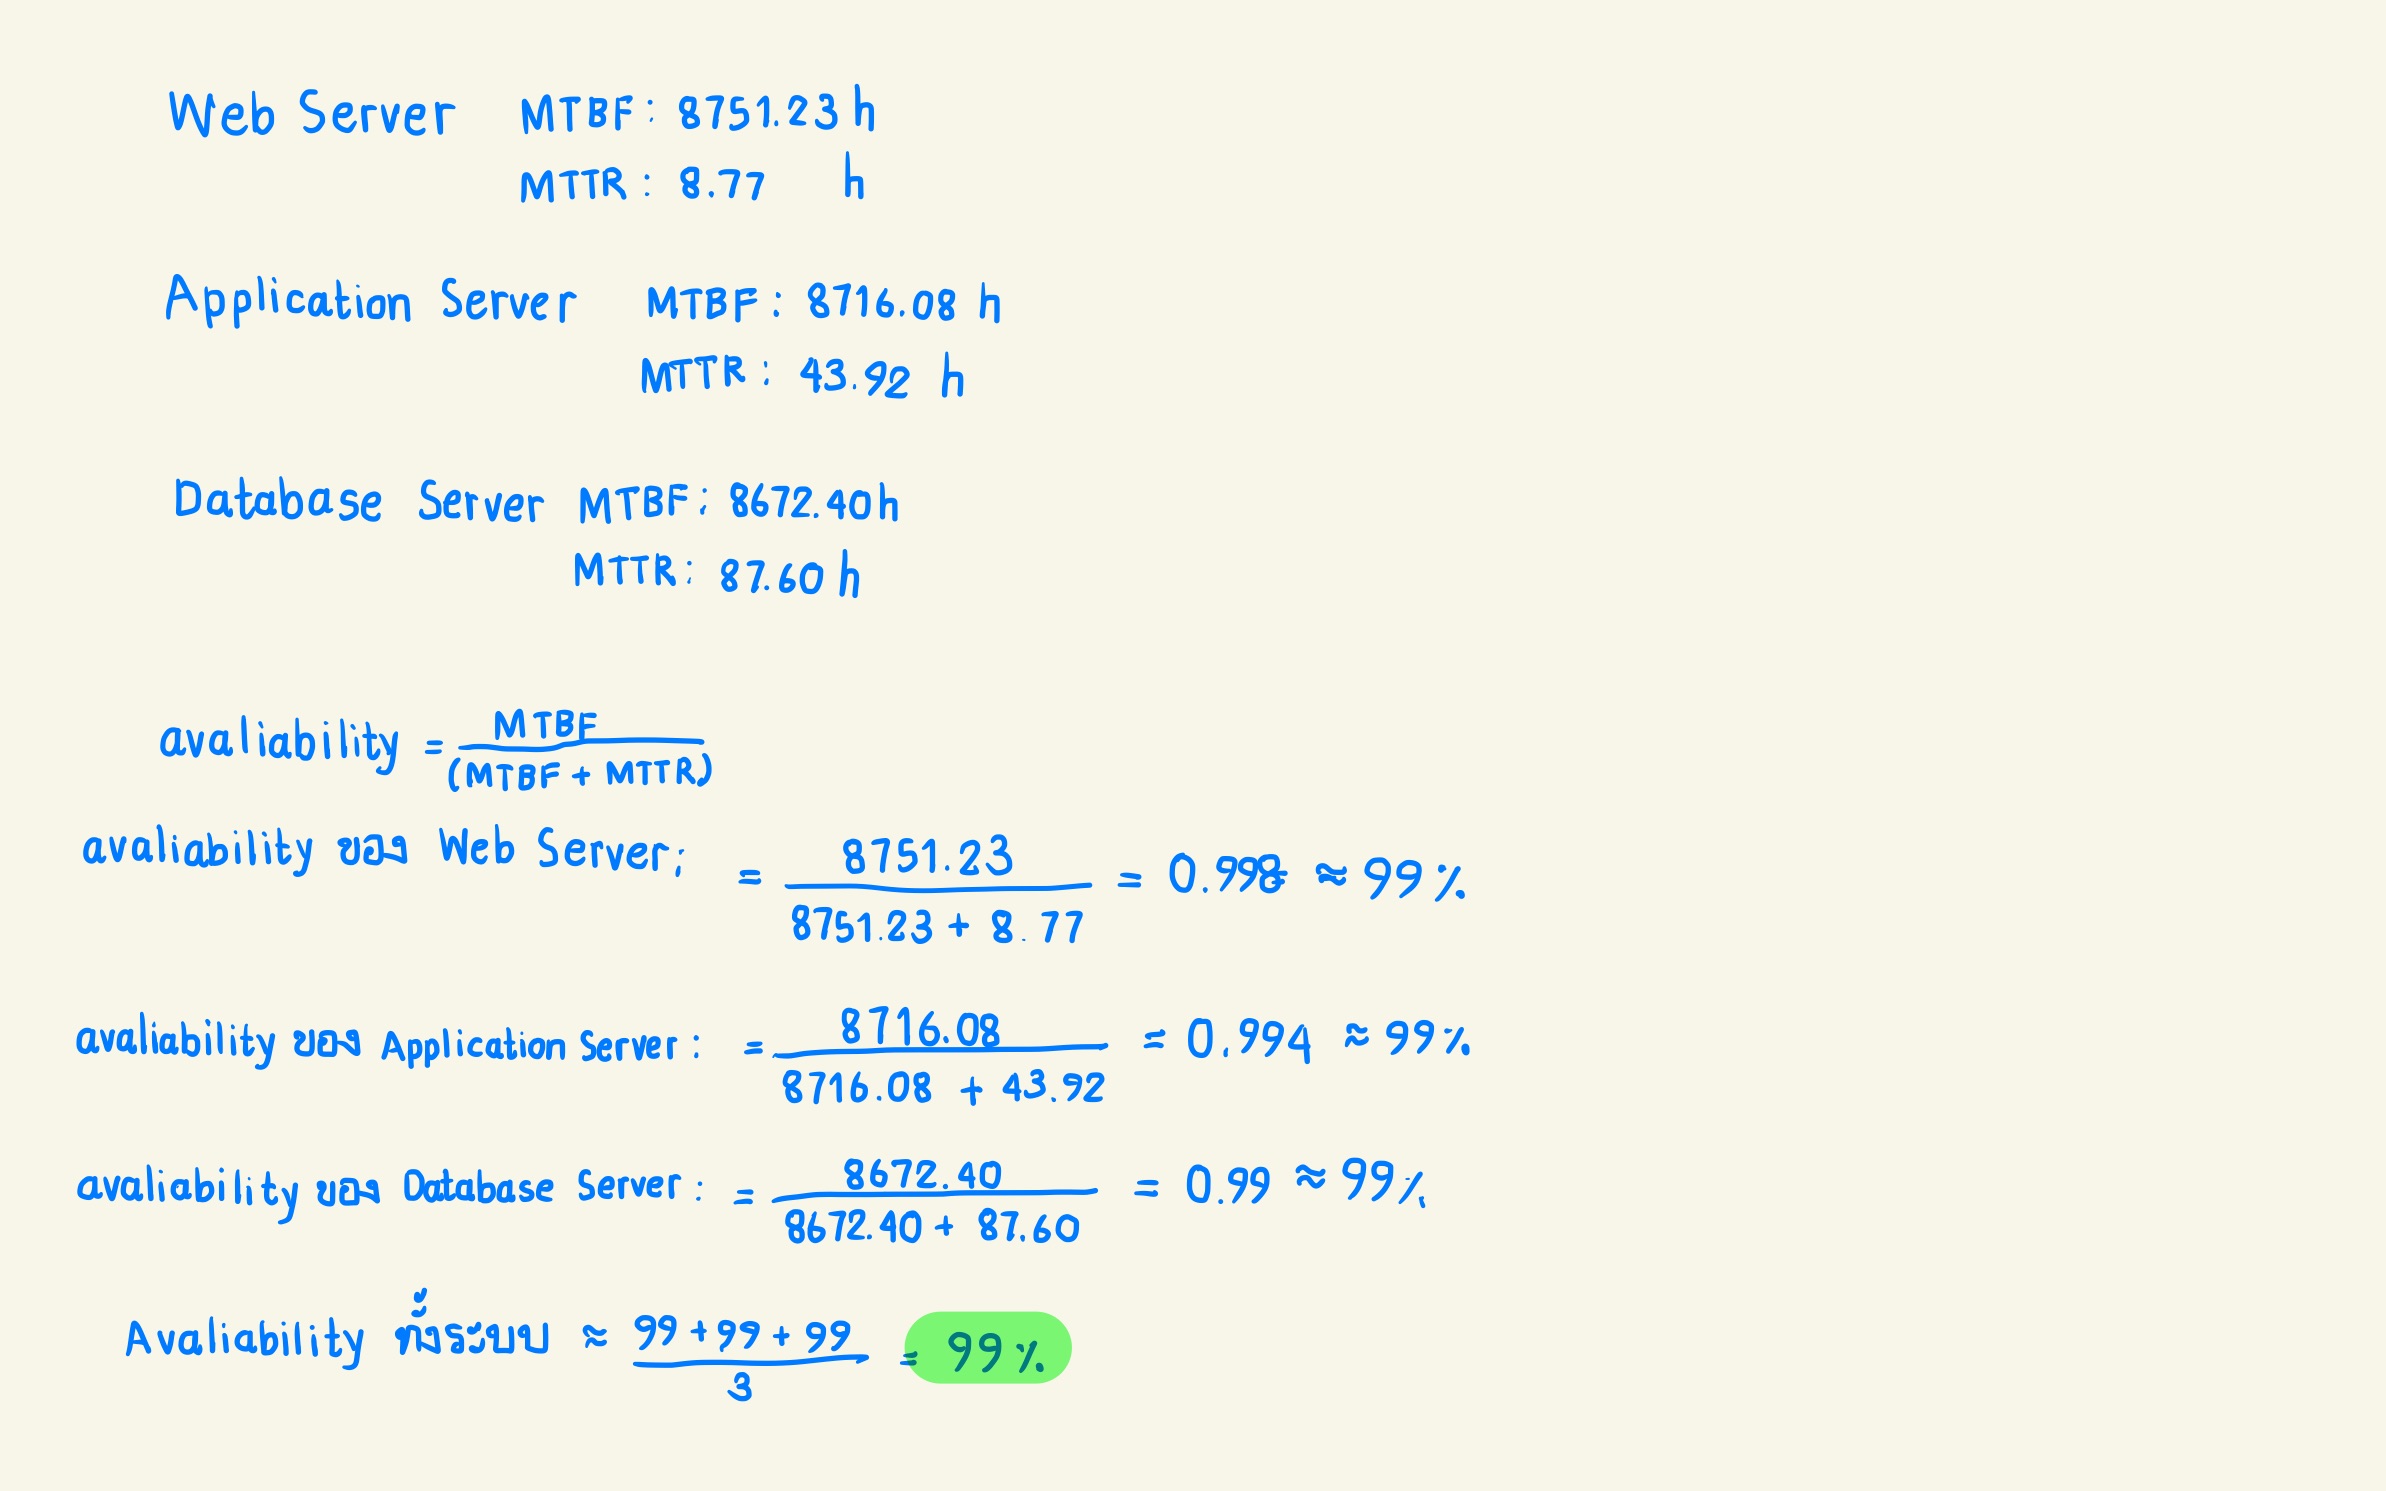 Web Server MTBF: 8751.23 h
MTTR: 8.77 h
Application Server MTBF: 8716.08 h
MTTR: 43.92 h
Database Server MTBF: 8672.40 h
MTTR: 87.60 h
avaliability = MTBF / (MTBF + MTTR)
avaliability ของ Web Server: = 8751.23 / 8751.23 + 8.77 = 0.998 ≈ 99%
avaliability ของ Application Server: = 8716.08 / 8716.08 + 43.92 = 0.994 ≈ 99%
avaliability ของ Database Server: = 8672.40 / 8672.40 + 87.60 = 0.99 ≈ 99%
Avaliability ทั้งระบบ ≈ 99 + 99 + 99 / 3 = 99%